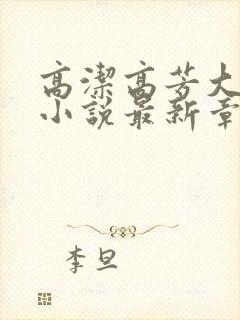 高潔高芳大
小說最新章
李旦